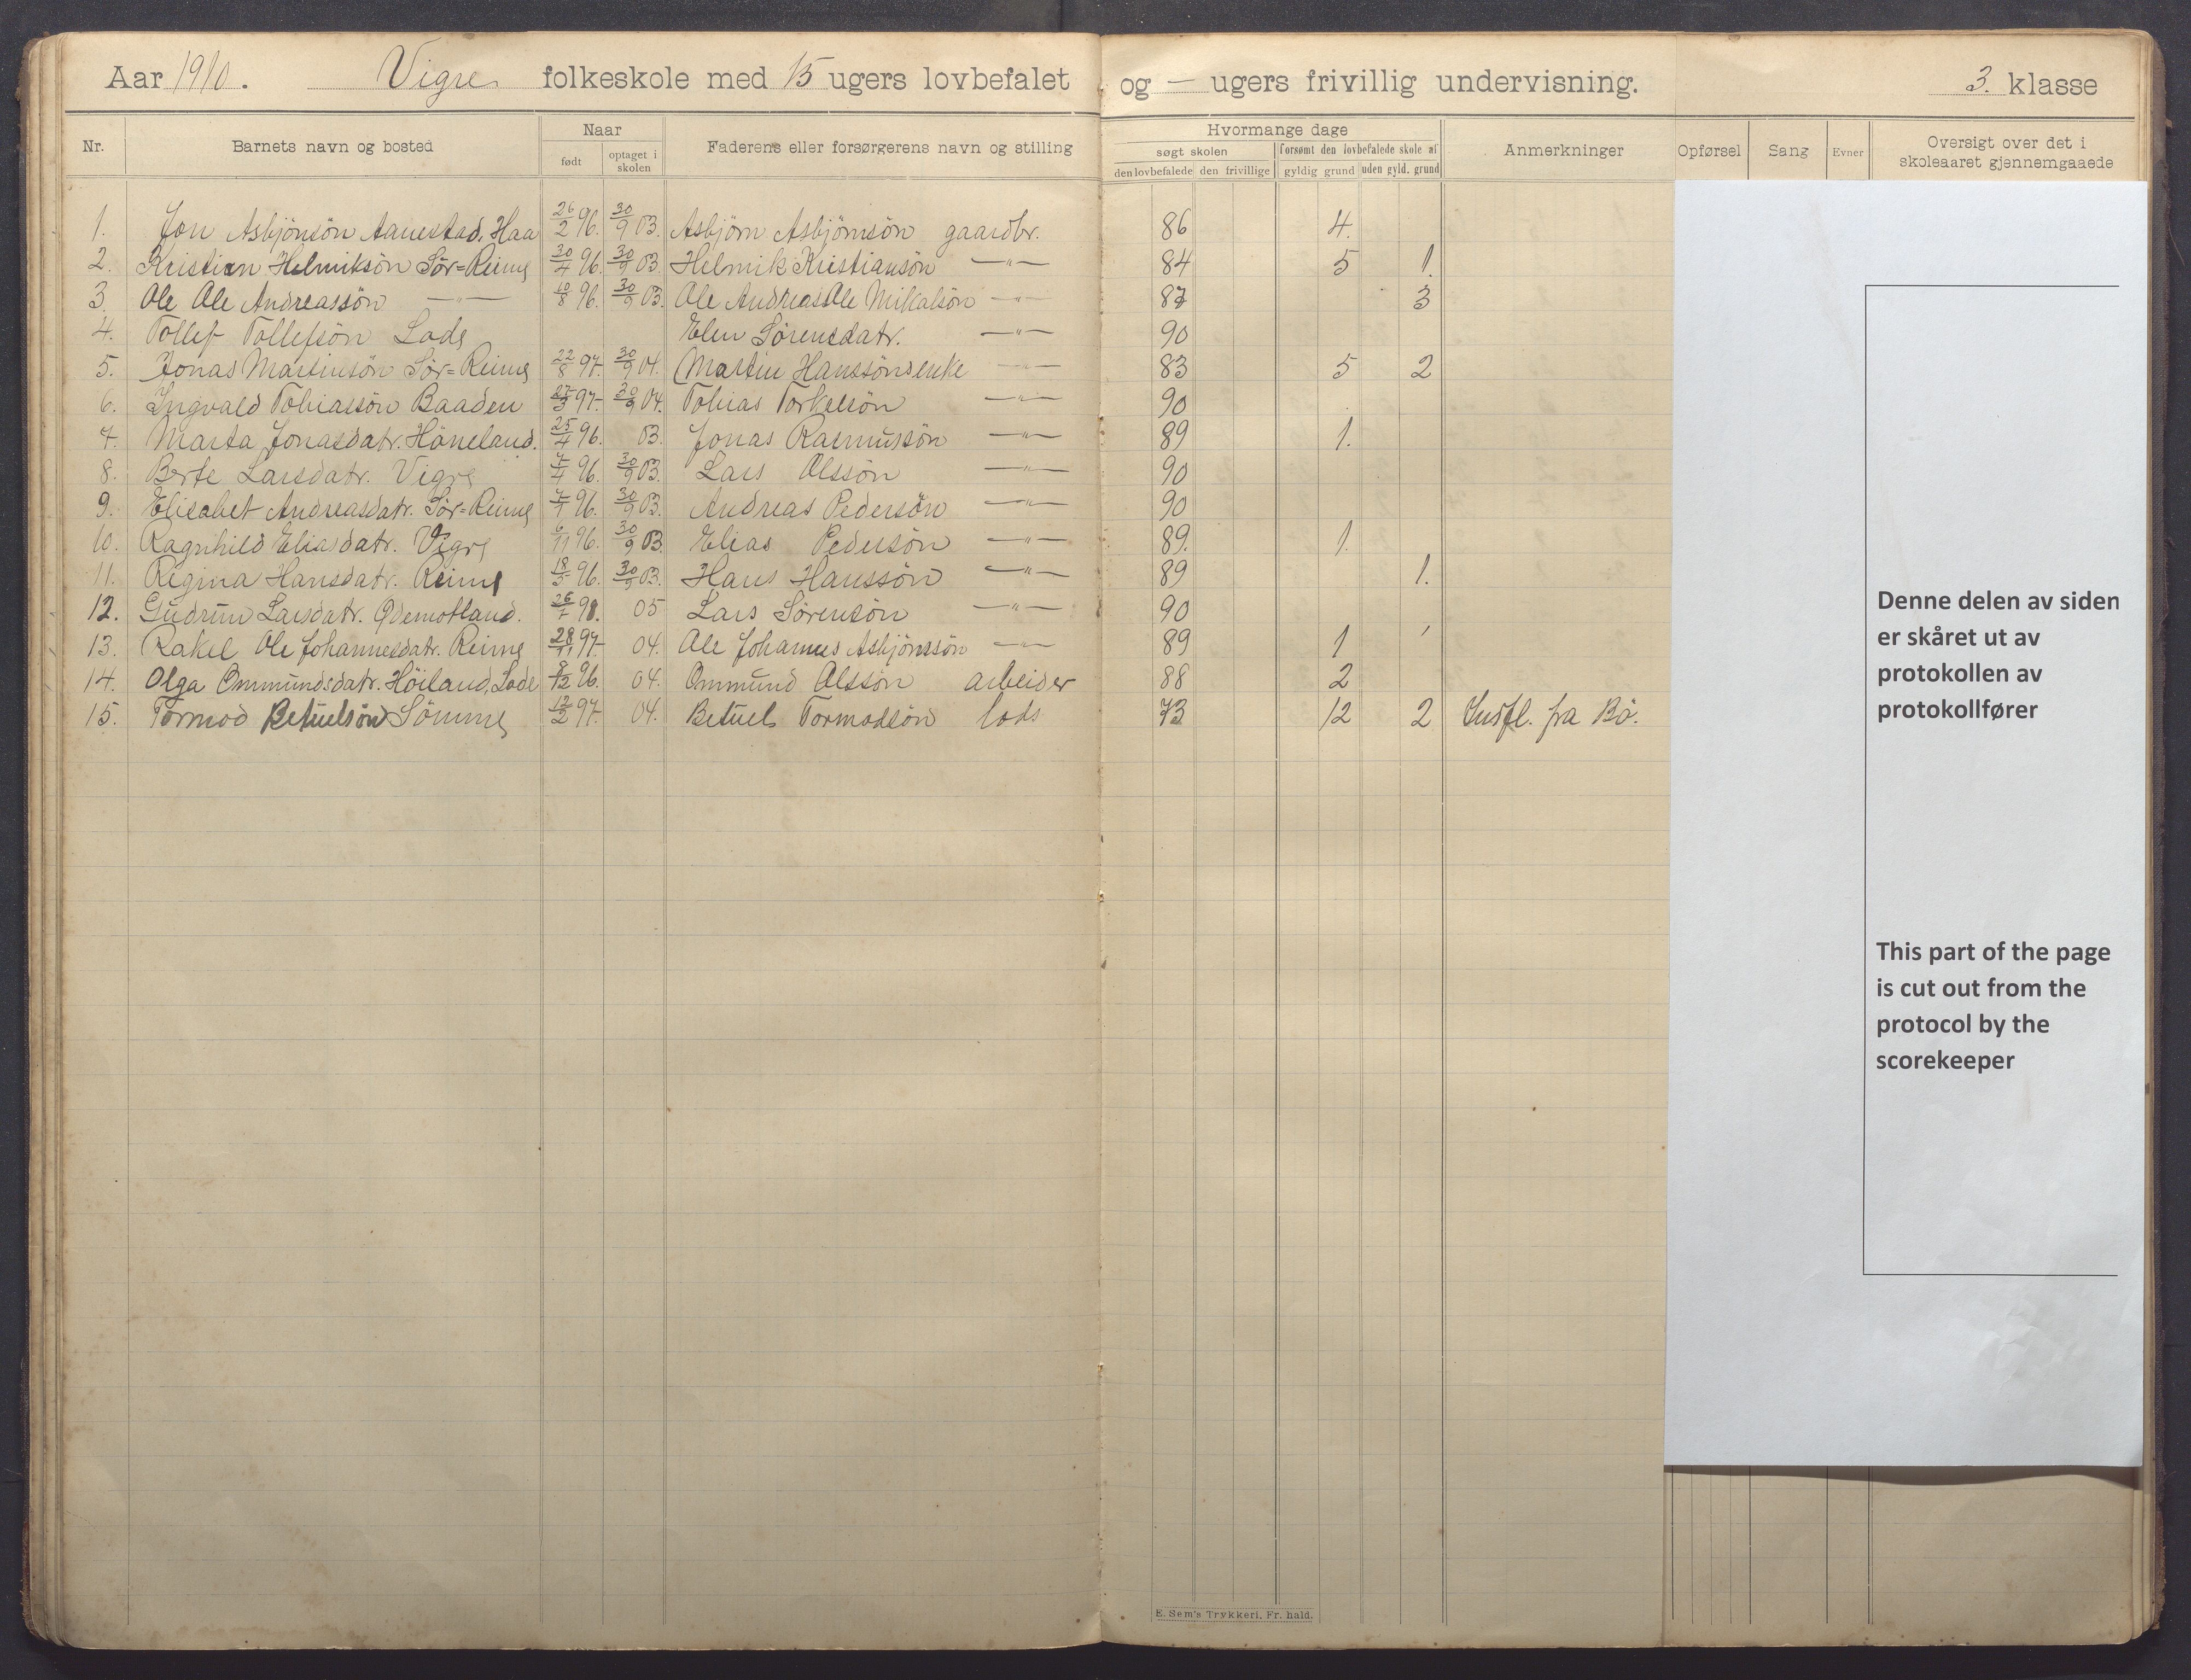 Aar 1910. Vigre folkeskole med 15 ugers lovbefalet og — ugers frivillig undervisning. 3. klasse
Nr. Barnets navn og bosted Naar født optaget i skolen Faderens eller forsørgerens navn og stilling Hvormange dage søgt skolen den lovbefalede den frivillige forsømt den lovbefalede skole af gyldig grund uden gyld. grund Anmerkninger Opførsel Sang Evner Oversigt over det i skoleaaret gjennemgaaede
1. Jon Asbjönsön Aanestad, Haa 26/2 96. 30/9 03. Asbjörn Asbjörnsön gaardbr. 86 4.
2. Kristian Helmiksön Sör=Reime 30/4 96. 30/9 03. Helmik Kristiansön —"— 84 5 1.
3. Ole Ole Andreassön —"— 10/8 96. 30/9 03. Ole Andreas Ole Mikalsön —"— 87 3
4. Tollef Tollefsön Lode Elen Sörensdatr. —"— 90
5. Jonas Martinsön Sör=Reime 22/8 97. 30/9 04. Martin Hanssöns enke —"— 83 5 2
6. Ingvald Tobiassön Baaden 27/3 97. 30/9 04. Tobias Torkelsön —"— 90
7. Marta Jonasdatr. Håneland. 25/4 96. 03. Jonas Rasmussön —"— 89 1.
8. Berte Larsdatr. Vigre 7/4 96. 30/9 03. Lars Olssön —"— 90
9. Elisabet Andreasdatr. Sör=Reime 7/7 96. 30/9 03. Andreas Pedersön —"— 90
10. Ragnhild Eliasdatr. Vigre 6/11 96. 30/9 03. Elias Pedersön —"— 89. 1.
11. Regina Hansdatr. Reime 18/5 96. 30/9 03. Hans Hanssön —"— 89 1.
12. Gudrun Larsdatr. Ødemotland. 26/1 98. 05 Lars Sörensön —"— 90
13. Rakel Ole Johannesdatr. Reime 28/11 97. 04. Ole Johannes Asbjörnsön —"— 89 1
14. Olga Ommundsdatr. Höiland, Lode 8/12 96. 04. Ommund Olssön arbeider 88 2
15. Tormod Betuelsön Sömme 12/2 97. 04. Betuel Tormodsön lods 73 12 2 Indfl. fra Bö.
Denne delen av siden
er skåret ut av
protokollen av
protokollfører
This part of the page
is cut out from the
protocol by the
scorekeeper
E. Sem's Trykkeri, Fr. hald.